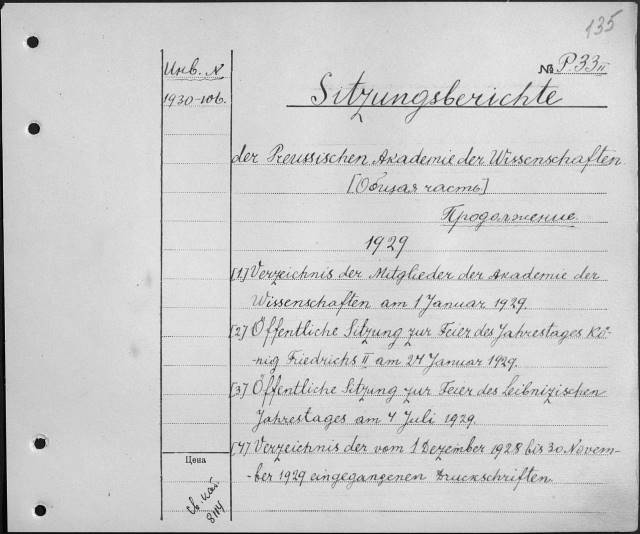 135
Инв. N
№ P.33 II
1930-106.
Sitzungsberichte
der Preussischen Akademie der Wissenschaften.
[Общая часть]
Продолжение.
1929
[1] Verzeichnis der Mitglieder der Akademie der
Wissenschaften am 1 Januar 1929.
[2] Öffentliche Sitzung zur Feier des Jahrestages Kö-
-nig Friedrichs II am 24 Januar 1929.
[3] Öffentliche Sitzung zur Feier des Leibnizischen
Jahrestages am 4 Juli 1929.
[4] Verzeichnis der vom 1 Dezember 1928 bis 30 Novem-
-ber 1929 eingegangenen Druckschriften.
Цена